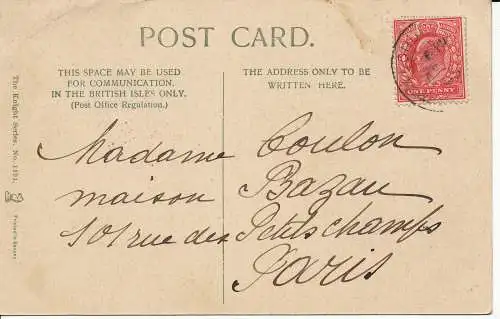 POST CARD.
THIS SPACE MAY BE USED
FOR COMMUNICATION
IN THE BRITISH ISLES ONLY.
(Post Office Regulation.)
THE ADDRESS ONLY TO BE
WRITTEN HERE.
ONE PENNY
Madame Coulon
maison Bazau
101 rue des Petits champs
Paris
The Knight Series, No. 1491.